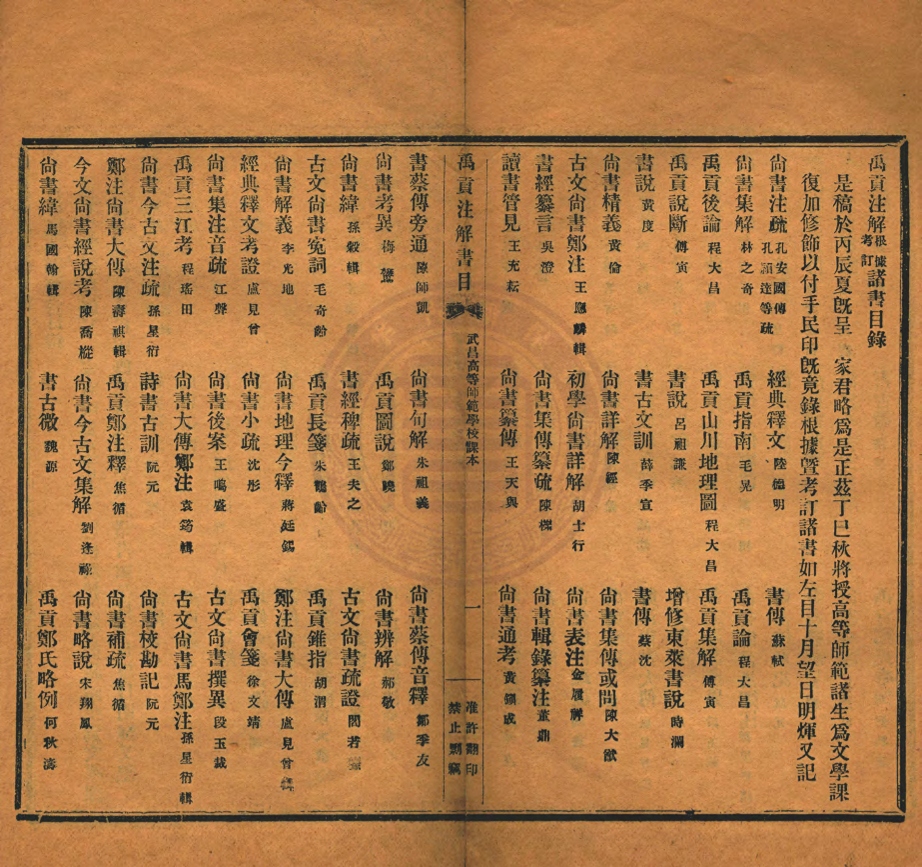 禹貢注解根據考訂諸書目錄
是稿於丙辰夏旣呈　家君略爲是正茲丁巳秋將授高等師範諸生爲文學課
復加修飾以付手民印旣竟錄根據曁考訂諸書如左目十月望日明煇又記
尙書注疏孔安國傳孔穎達等疏　經典釋文陸德明　書傳蘇軾
尙書集解林之奇　禹貢指南毛晃　禹貢論程大昌
禹貢後論程大昌　禹貢山川地理圖程大昌　禹貢集解傅寅
禹貢說斷傅寅　書說呂祖謙　增修東萊書說時瀾
書說黃度　書古文訓薛季宣　書傳蔡沈
尙書精義黃倫　尙書詳解陳經　尙書集傳或問陳大猷
古文尙書鄭注王應麟輯　初學尙書詳解胡士行　尙書表注金履祥
書經纂言吳澄　尙書集傳纂疏陳櫟　尙書輯錄纂注董鼎
讀書管見王充耘　尙書纂傳王天與　尙書通考黃鎭成
禹貢注解書目　武昌高等師範學校課本　一　准許翻印　禁止剽竊
書蔡傳旁通陳師凱　尙書句解朱祖義　尙書蔡傳音釋鄒季友
尙書考異梅鷟　禹貢圖說鄭曉　尙書辨解郝敬
尙書緯孫瑴輯　書經稗疏王夫之　古文尙書疏證閻若璩
古文尙書寃詞毛奇齡　禹貢長箋朱鶴齡　禹貢錐指胡渭
尙書解義李光地　尙書地理今釋蔣廷錫　鄭注尙書大傳盧見曾輯
經典釋文考證盧見曾　尙書小疏沈彤　禹貢會箋徐文靖
尙書集注音疏江聲　尙書後案王鳴盛　古文尙書撰異段玉裁
禹貢三江考程瑤田　尙書大傳鄭注袁鈞輯　古文尙書馬鄭注孫星衍輯
尙書今古文注疏孫星衍　詩書古訓阮元　尙書校勘記阮元
鄭注尙書大傳陳壽祺輯　禹貢鄭注釋焦循　尙書補疏焦循
今文尙書經說考陳喬樅　尙書今古文集解劉逢祿　尙書略說宋翔鳳
尙書緯馬國翰輯　書古微魏源　禹貢鄭氏略例何秋濤